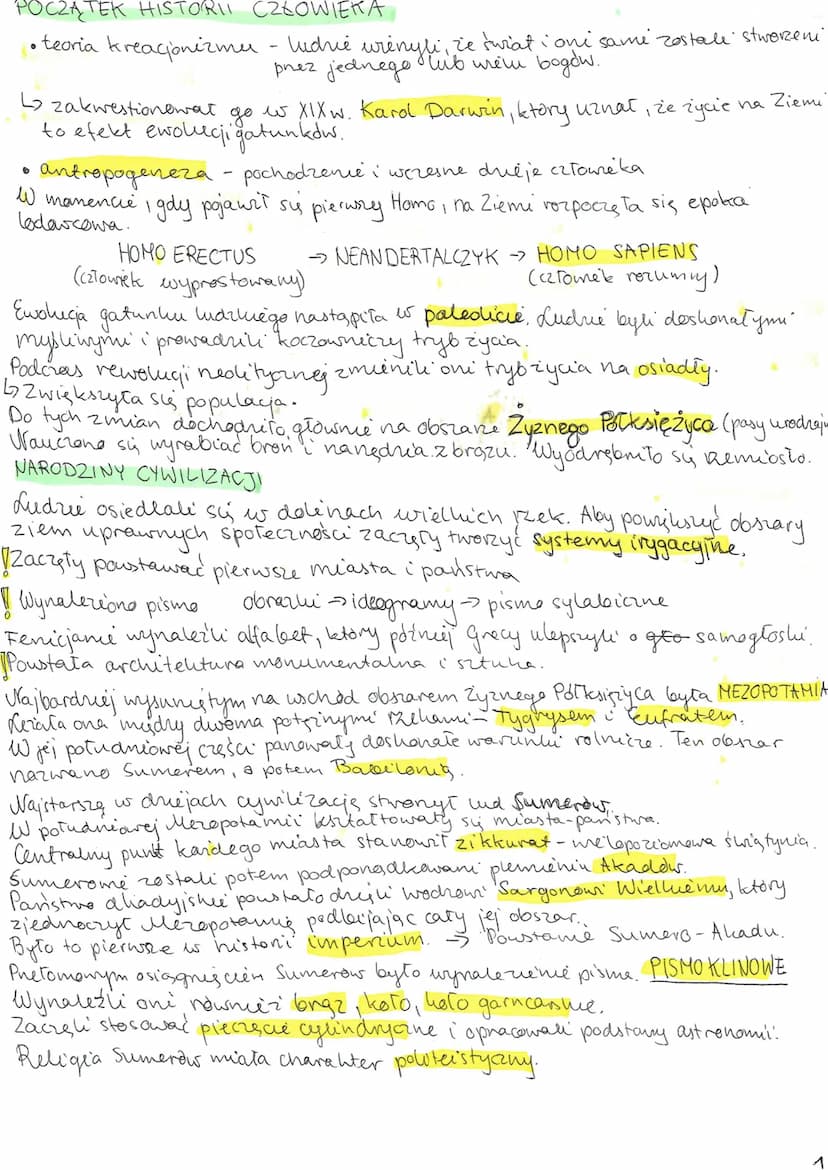 POCZĄTEK HISTORII CZŁOWIEKA
• teoria kreacjonizmu - ludzie wierzyli, że świat i oni sami zostali stworzeni
przez jednego lub wielu bogów.
↳ zakwestionował go w XIX w. Karol Darwin, który uznał, że życie na Ziemi
to efekt ewolucji gatunków.
• antropogeneza - pochodzenie i wczesne dzieje człowieka
W momencie, gdy pojawił się pierwszy Homo, na Ziemi rozpoczęła się epoka
lodowcowa.
HOMO ERECTUS → NEANDERTALCZYK → HOMO SAPIENS
(człowiek wyprostowany) (człowiek rozumny)
Ewolucja gatunku ludzkiego nastąpiła w paleolicie. Ludzie byli doskonałymi
myśliwymi i prowadzili koczowniczy tryb życia.
Podczas rewolucji neolitycznej zmienili oni tryb życia na osiadły.
↳ Zwiększyła się populacja.
Do tych zmian dochodziło głównie na obszarze Żyznego Półksiężyca (pasy urodzaju
Nauczono się wyrabiać broń i narzędzia z brązu. Wyodrębniło się rzemiosło.
NARODZINY CYWILIZACJI
Ludzie osiedlali się w dolinach wielkich rzek. Aby powiększyć obszary
ziem uprawnych społeczności zaczęły tworzyć systemy irygacyjne.
! Zaczęły powstawać pierwsze miasta i państwa
! Wynaleziono pismo obrazki → ideogramy → pismo sylabiczne
Fenicjanie wynaleźli alfabet, który później Grecy ulepszyli o gło samogłoski.
! Powstała architektura monumentalna i sztuka.
Najbardziej wysuniętym na wschód obszarem Żyznego Półksiężyca była MEZOPOTAMIA
Leżała ona między dwoma potężnymi rzekami - Tygrysem i Eufratem.
W jej południowej części panowały doskonałe warunki rolnicze. Ten obszar
nazwano Sumerem, a potem Babilonią.
Najstarszą w dziejach cywilizację stworzył lud Sumerów.
W południowej Mezopotamii kształtowały się miasta-państwa.
Centralny punkt każdego miasta stanowił zikkurat - wielopoziomowa świątynia.
Sumerowie zostali potem podporządkowani plemieniu Akadów.
Państwo akadyjskie powstało dzięki wodzowi Sargonowi Wielkiemu, który
zjednoczył Mezopotamię podbijając cały jej obszar.
Było to pierwsze w historii imperium. → Powstanie Sumero-Akadu.
Przełomowym osiągnięciem Sumerów było wynalezienie pisma. PISMO KLINOWE
Wynaleźli oni również brąz, koło, koło garncarskie.
Zaczęli stosować pieczęcie cylindryczne i opracowali podstawy astronomii.
Religia Sumerów miała charakter politeistyczny.
1